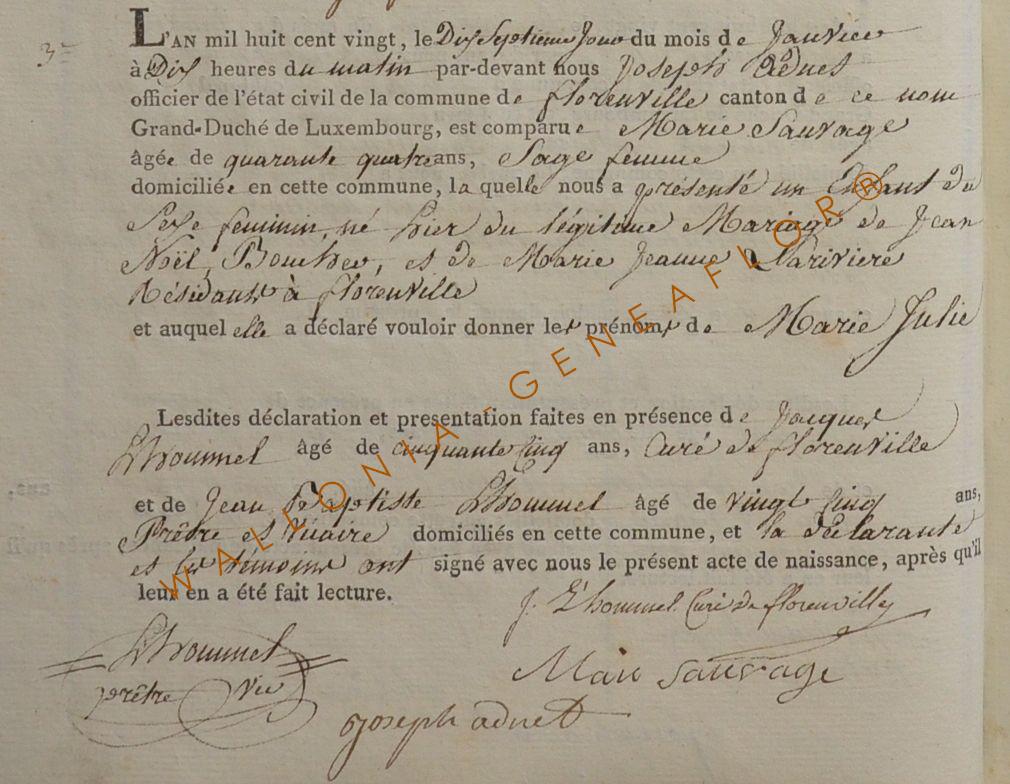 3=
L'AN mil huit cent vingt, le Dix Septieme Jour du mois de Janvier
à Dix heures du matin par-devant nous Joseph Adnet
officier de l'état civil de la commune de florenville canton de ce nom
Grand-Duché de Luxembourg, est comparue Marie Sauvage
âgée de quarante quatre ans, Sage femme
domiciliée en cette commune, la quelle nous a présenté un Enfant du
Sexe feminin, né hier du légitime Mariage de Jean
Noël Boucher, et de Marie Jeanne Lariviere
Résidants à florenville
et auquel elle a déclaré vouloir donner les prénoms de Marie Julie
Lesdites déclaration et presentation faites en présence de Jacques
Lhommel âgé de cinquante Cinq ans, Curé de florenville
et de Jean Baptiste Lhommel âgé de vingt Cinq ans,
Prêtre et Vicaire domiciliés en cette commune, et la déclarante
et les témoins ont signé avec nous le présent acte de naissance, après qu'il
leur en a été fait lecture.
J. L'hommel Curé de florenville
Lhommel
prêtre Vic
Mari Sauvage
Joseph adnet
WALLONIA-GENEAFLOR®